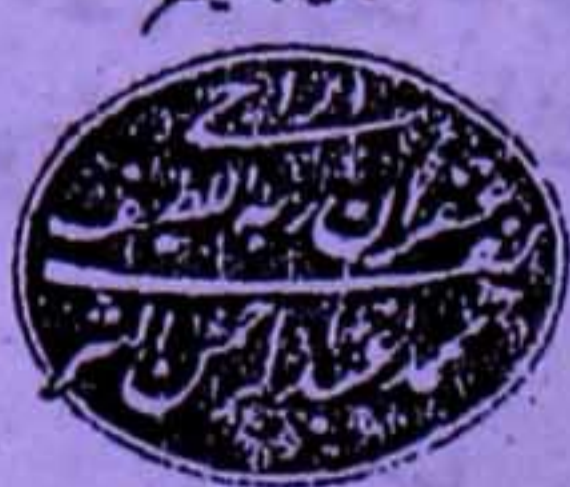 الراجي
غفران ربه اللطيف
محمد عبد الرحمن الشريف